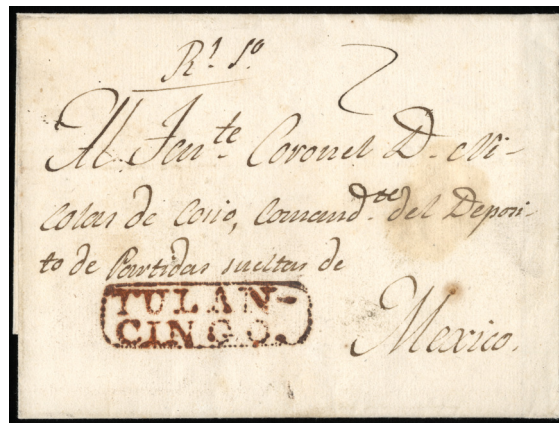 Rl. So.
2
Al Tente. Coronel D. Ni-
colas de Cosio, Comandte. del Deposi-
to de Partidas sueltas de
Mexico.
TULAN-
CINGO.